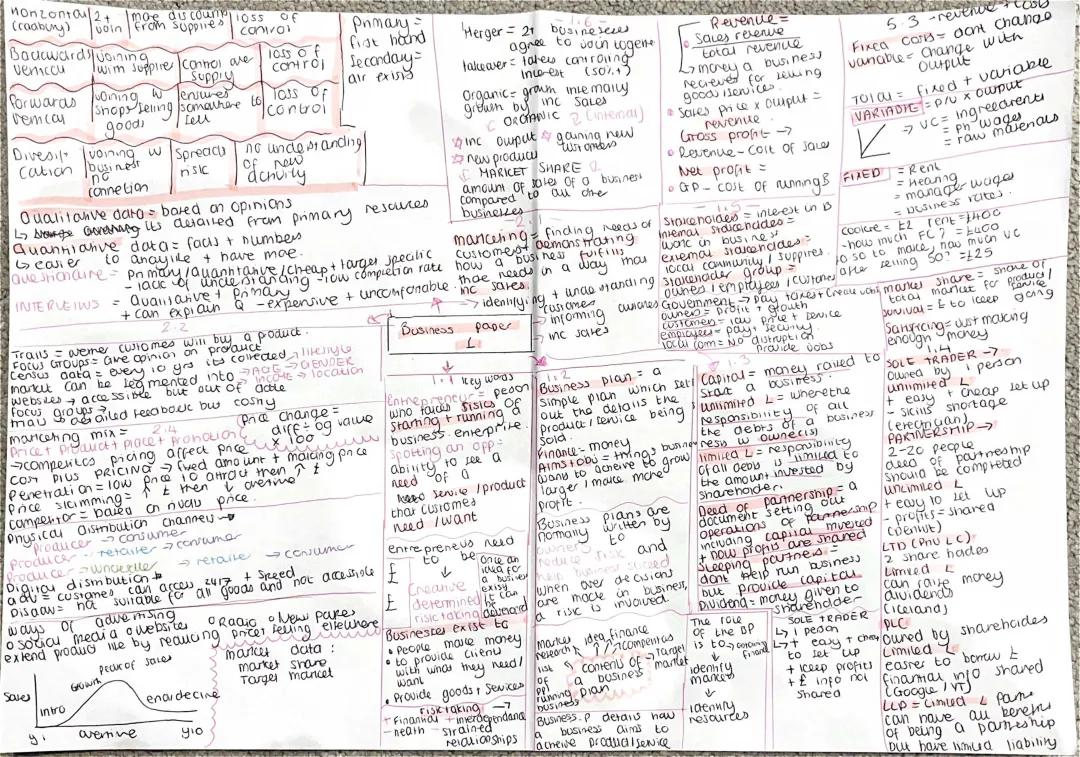 Horizontal
(cadbury)
2+
join
more discount
from supplies
loss of
control
Backwards
vertical
joining
with supplier
control over
supply
loss of
control
Forwards
vertical
joining w
shops selling
goods
ensures
somewhere to
sell
loss of
control
Diversifi
cation
joining w
business
no
connection
Spreads
risk
no understanding
of new
activity
Primary =
first hand
Secondary =
alr exists
Qualitative data = based on opinions
its detailed from primary resources
Quantitative data = facts + numbers
↳ easier to anaylise + have more.
questionaire = primary/quantitative/cheap + target specific
- lack of understanding - low completion rate
INTERVIEWS = Qualitative + primary
+ can explain Q - expensive + uncomfortable
2.2
Trails = wether customes will buy a product.
Focus Groups = give opinion on product
Census data = every 10 yrs its collected
market can be segmented into → AGE → GENDER → lifestyle
→ income → location
websites → accessible but out of date
Focus groups →
detailed feedback but costly
2.4
marketing mix =
Price + product + place + promotion
Price change =
diff ÷ og value
x 100
→ competitors pricing affect price
cost plus PRICING → fixed amount + making price
Penetration = low price to attract then ↑ £
Price skimming = ↑ £ then ↓ overtime
competitor = based on rivals price.
Physical distribution channels →
Producer → consumer
Producer → retailer → consumer
Producer → wholesaler → retailer → consumer
Digital distribution →
adv = customes can access 24/7 + speed
Disadv = not suitable for all goods and not accessible
ways of advertising
o social media o websites o Radio o News papers
extend product life by reducing price, selling elsewhere
market data:
market share
Target market
peak of sales
Sales
intro
Growth
end/decline
y1
overtime
y10
1.6
Merger = 2+ businesses
agree to join together
takeover = takes controlling
interest (50%+)
Organic = growth internally
growth by inc sales
ORGANIC (internal)
☆ inc output ☆ gaining new
customers
☆ new product
MARKET SHARE
amount of sales of a business
compared to all other
businesses
2.1
marketing = finding needs of
customers + demonstrating
how a business fulfills
those needs in a way that
inc sales
→ identifying + understanding
customers
→ informing customers
→ inc sales
Business paper
1
1.1 key words
Entrepreneur = person
who takes risks of
starting + running a
business enterprise.
Spotting an opp =
ability to see a
need of a
service/product
that customers
need/want
entrepreneus need
to
£
£
Creative
determined
risk taking
Once an
idea for
a business
exists
it can be
Businesses exist to
• People make money
• to provide clients
with what they need/
want
• Provide goods + services
risk taking →
+ financial + interdependance
- health - strained
relationships
1.2
Business plan = a
simple plan which sets
out the details the
product/service being
sold.
Finance - money
Aims + obj = things business
wants to acheive to grow
larger/make more
profit.
Business plans are
normally written by
owners
reduce risk and
help business succeed
when over decisions
are made in business,
a risk is involved.
market research
idea, finance
competitors
Target market
list of ppl running business
contents of
a business
plan
Business.P details how
a business aims to
acheive product/service
Revenue =
• Sales revenue
total revenue
↳ money a business
recieves for selling
goods/services.
• Sales price x output =
revenue
Gross profit →
• Revenue - cost of sales
Net profit =
• GP - cost of running B
1.5
Stakeholdes = interest in B
internal stakeholdes =
work in business
external stakeholdes =
local community/suppires.
Stakeholder group =
owners/employees/customer
Government → pay taxes + create jobs
owners = profit + growth
customers = low price + service
employees = pay, security
local com = no disruption
Provide jobs
1.3
Capital = money raised to
start a business.
unlimited L = wherethe
responsibility of all
the debts of a business
rests w owner(s)
limited L = responsibility
of all debts is limited to
the amount invested by
shareholder.
Deed of partnership = a
document setting out
operations of partnership
including capital invested
+ how profits are shared
Sleeping partners =
dont help run business
but provide capital
Dividend = money given to
shareholder
The role
of the BP
is to →
↓
identify
markets
↓
identify
resources
obtaining
finance
SOLE TRADER
↳ 1 person
↳ + easy + cheap
to set up
+ keep profits
+ £ info not
shared
5.3 - revenue + costs
Fixed costs = dont change
variable = change with
output
Total = fixed + variable
VARIABLE = P/U x output
→ VC = ingredients
= Pn wages
= raw materials
FIXED
= Rent
= Heating
= manager wages
= business rates
rent = £400
- how much FC? = £400
to make, how much VC
after selling 50? = £25
market share = share of
total market for product/
service
survival = £ to keep going
Satisficing = just making
enough money
1.4
SOLE TRADER →
owned by 1 person
unlimited L
+ easy + cheap set up
- skills shortage
(electrician)
PARTNERSHIP →
2-20 people
deed of partnership
should be completed
unlimited L
+ easy to set up
- profits = shared
(dentist)
LTD (Priv LC)
2 share holdes
Limited L
can raise money
dividends
(iceland)
PLC
owned by shareholdes
Limited L
easier to borrow £
financial info shared
(Google/YT)
LLP = Limited L Partne
can have all benefits
of being a partnership
but have limited liability